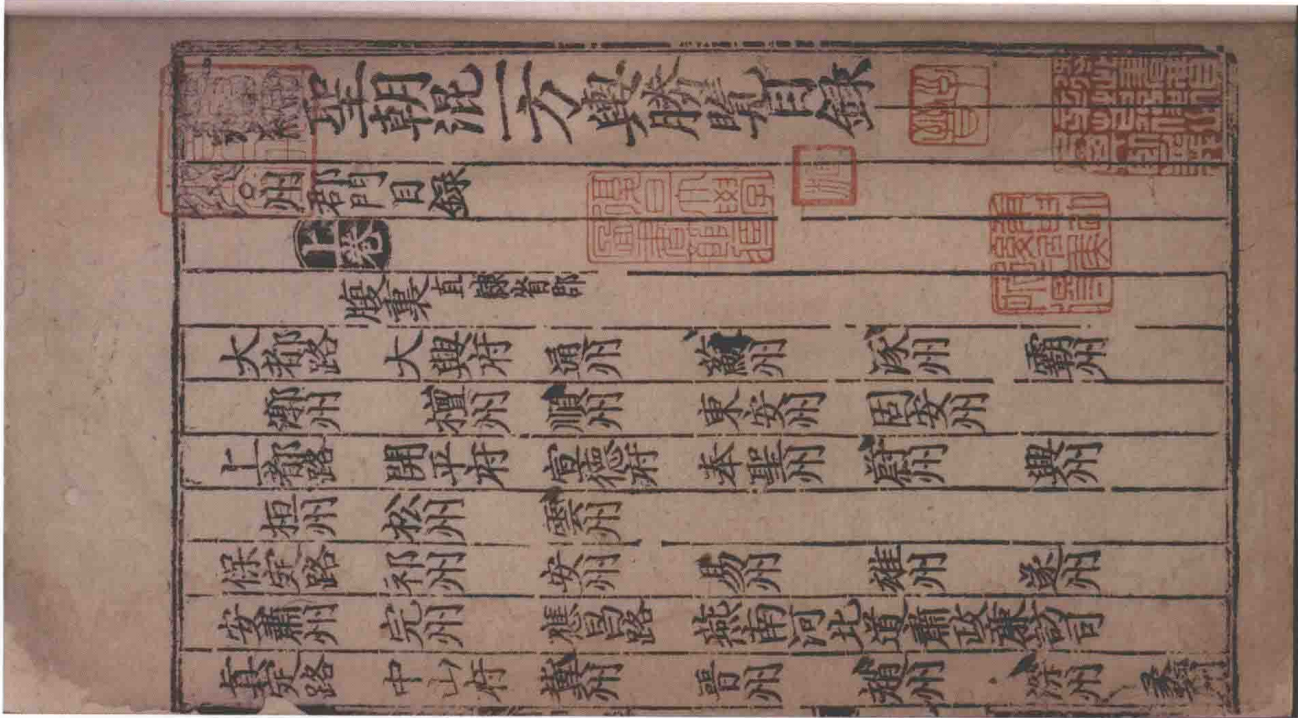 聖朝混一方輿勝覽目錄
州郡門目錄
上卷
腹裏直隸省部
大都路 大興府 通州 薊州 涿州 霸州
漷州 檀州 順州 東安州 固安州
上都路 開平府 宣德府 奉聖州 蔚州 興州
桓州 松州 雲州
保定路 祁州 安州 易州 雄州 遂州
安肅州 完州 燕南河北道肅政廉訪司
真定路 中山府 冀州 晉州 趙州 深州 蠡州